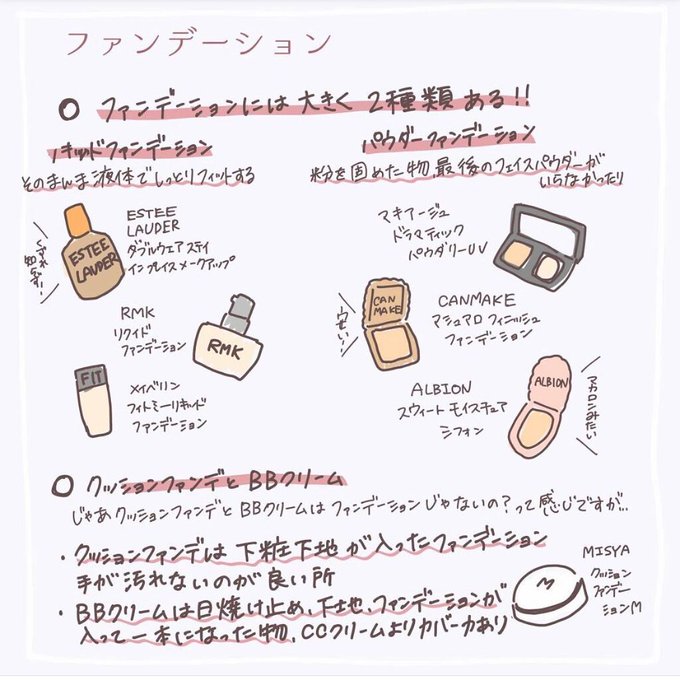 ファンデーション
○ ファンデーションには大きく2種類ある!!
リキッドファンデーション
そのまんま液体でしっとりフィットする
くずれ
知らず!
ESTEE
LAUDER
ESTEE
LAUDER
ダブルウェア ステイ
イン プレイス メークアップ
RMK
リクイド
ファンデーション
RMK
FIT
メイベリン
フィトミーリキッド
ファンデーション
パウダーファンデーション
粉を固めた物、最後のフェイスパウダーが
いらなかったり
マキアージュ
ドラマティック
パウダリーUV
CAN
MAKE
CANMAKE
マシュマロ フィニッシュ
ファンデーション
ALBION
スウィート モイスチュア
シフォン
ALBION
マカロンみたい
○ クッションファンデとBBクリーム
じゃあクッションファンデとBBクリームはファンデーションじゃないの?って感じですが...
・クッションファンデは下粧下地が入ったファンデーション
手が汚れないのが良い所
・BBクリームは日焼け止め、下地、ファンデーションが
入って一本になった物、CCクリームよりカバー力あり
MISYA
クッション
ファンデー
ションM
M